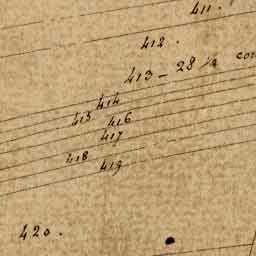 411.
412.
413 - 28 ½
414
415
416
417
418
419
420.